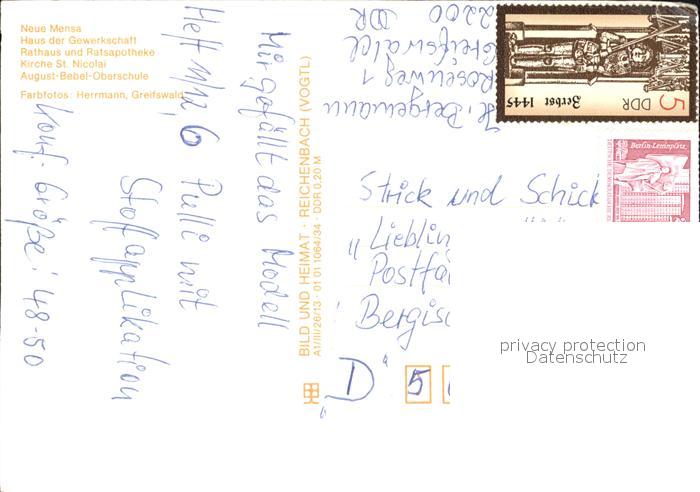 Neue Mensa
Haus der Gewerkschaft
Rathaus und Ratsapotheke
Kirche St. Nicolai
August-Bebel-Oberschule
Farbfotos: Herrmann, Greifswald
Mir gefällt das Modell
Heft 11/12, 6 Pulli mit
Stoffapplikation
Konf. Größe: 48-50
BILD UND HEIMAT · REICHENBACH (VOGTL)
A1/III/26/13 · 01 01 1064/34 · DDR 0,20 M
Bergemann
Rosenweg 1
Greifswald
2200 DDR
Zerbst 1445
DDR 5
Berlin-Leninplatz
Strick und Schick
"Lieblin
Postfa
Bergisc
"D" 5
privacy protection
Datenschutz